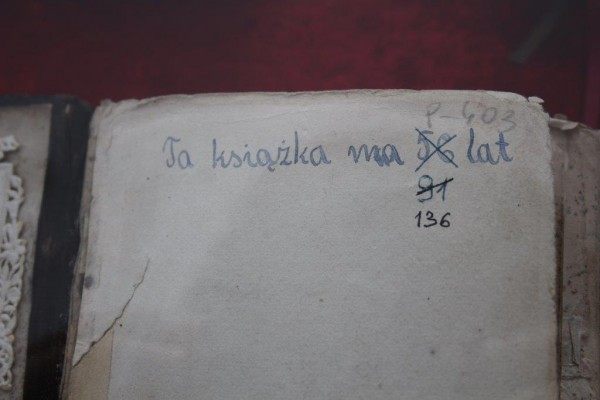 P-403
Ta książka ma 56 lat
91
136